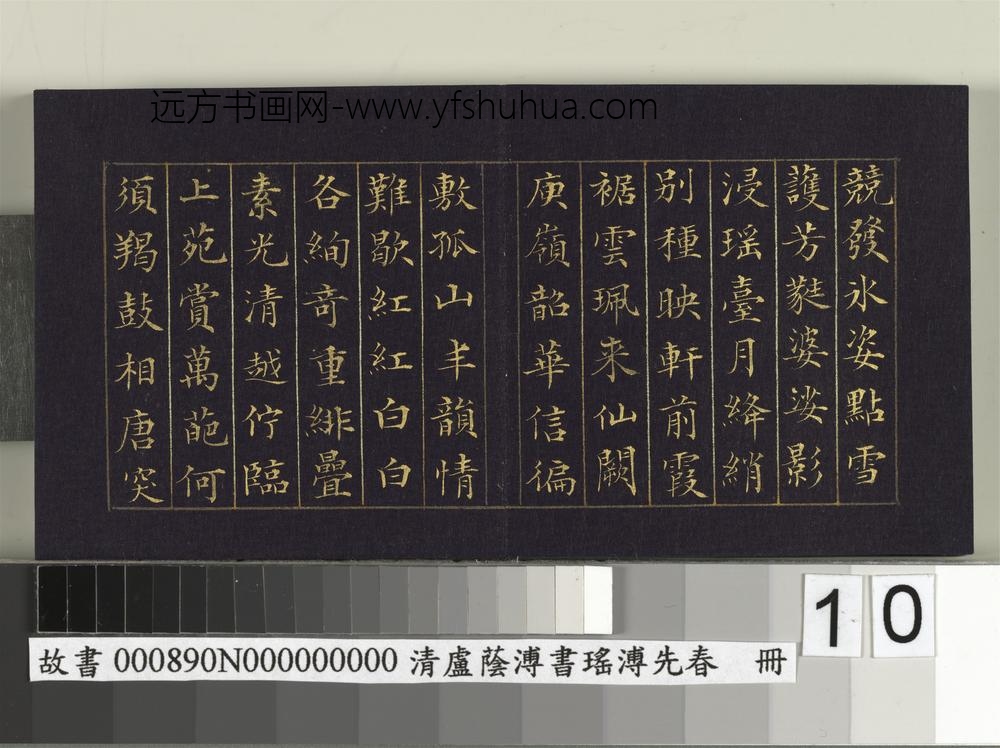 远方书画网-www.yfshuhua.com
競發氷姿點雪
護芳蕤婆娑影
浸瑶臺月絳綃
别種映軒前霞
裾雲珮来仙闕
庚嶺韶華信徧
敷孤山丰韻情
難歇紅紅白白
各絢竒重緋疊
素光清越佇臨
上苑賞萬葩何
須羯鼓相唐突
10
故書 000890N000000000 清盧蔭溥書瑤溥先春 冊